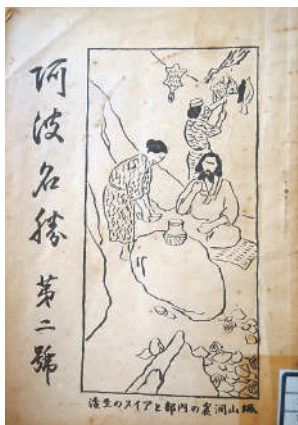 阿波名勝 第二號
城山洞窟の内部とアイヌの生活